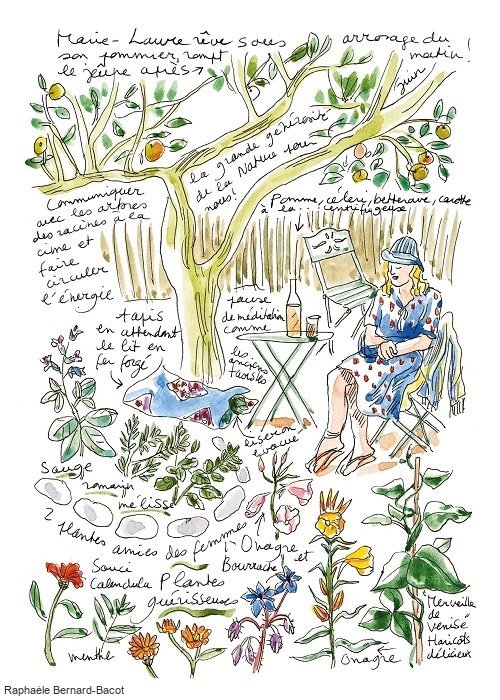 Marie-Laure rêve sous
son pommier, rompt
le jeûne après →
arrosage du
matin !
juin
la grande générosité
de la Nature pour
nous !
Communiquer
avec les arbres
des racines à la
cime et
faire
circuler
l'énergie
Pomme, céleri, betterave, carotte
à la... centrifugeuse
tapis
en attendant
le lit en
fer forgé
pause
de méditation
comme
les
anciens
taoïstes
liseron
vivace
Sauge
romarin
mélisse
2 plantes amies des femmes : Onagre et
Bourrache
Souci
Calendula
Plantes
guérisseuses
menthe
Onagre
"Merveille
de
Venise"
Haricots
délicieux
Raphaèle Bernard-Bacot